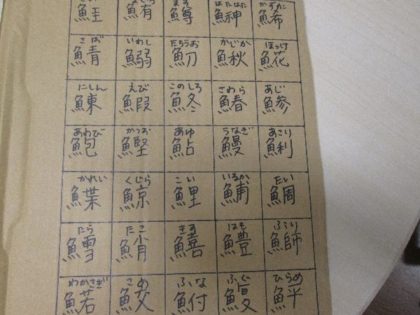 ます はたはた
鮪 鱒 鰰
さば いわし たちうお かじか ほっけ
鯖 鰯 魛 鰍 𩸽
にしん えび このしろ さわら あじ
鯟 鰕 鮗 鰆 鯵
あわび かつお あゆ うなぎ あさり
鮑 鰹 鮎 鰻 鯏
かれい くじら こい いるか たい
鰈 鯨 鯉 鯆 鯛
たら たこ きす はも ぶり
鱈 鮹 鱚 鱧 鰤
わかさぎ さめ ふな ふぐ ひらめ
鰙 鮫 鮒 鰒 鮃